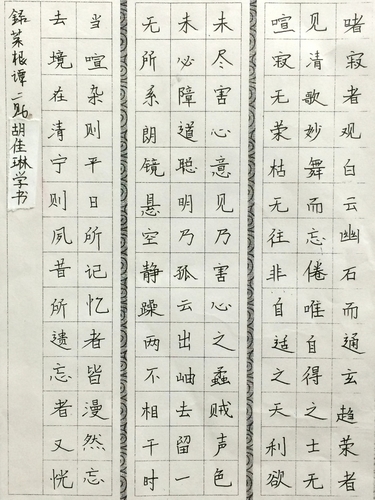 嗜寂者观白云幽石而通玄趋荣者
见清歌妙舞而忘倦唯自得之士无
喧寂无荣枯无往非自适之天利欲
未尽害心意见乃害心之蟊贼声色
未必障道聪明乃孤云出岫去留一
无所系朗镜悬空静躁两不相干时
当喧杂则平日所记忆者皆漫然忘
去境在清宁则夙昔所遗忘者又恍
錄菜根谭二则胡佳琳学书